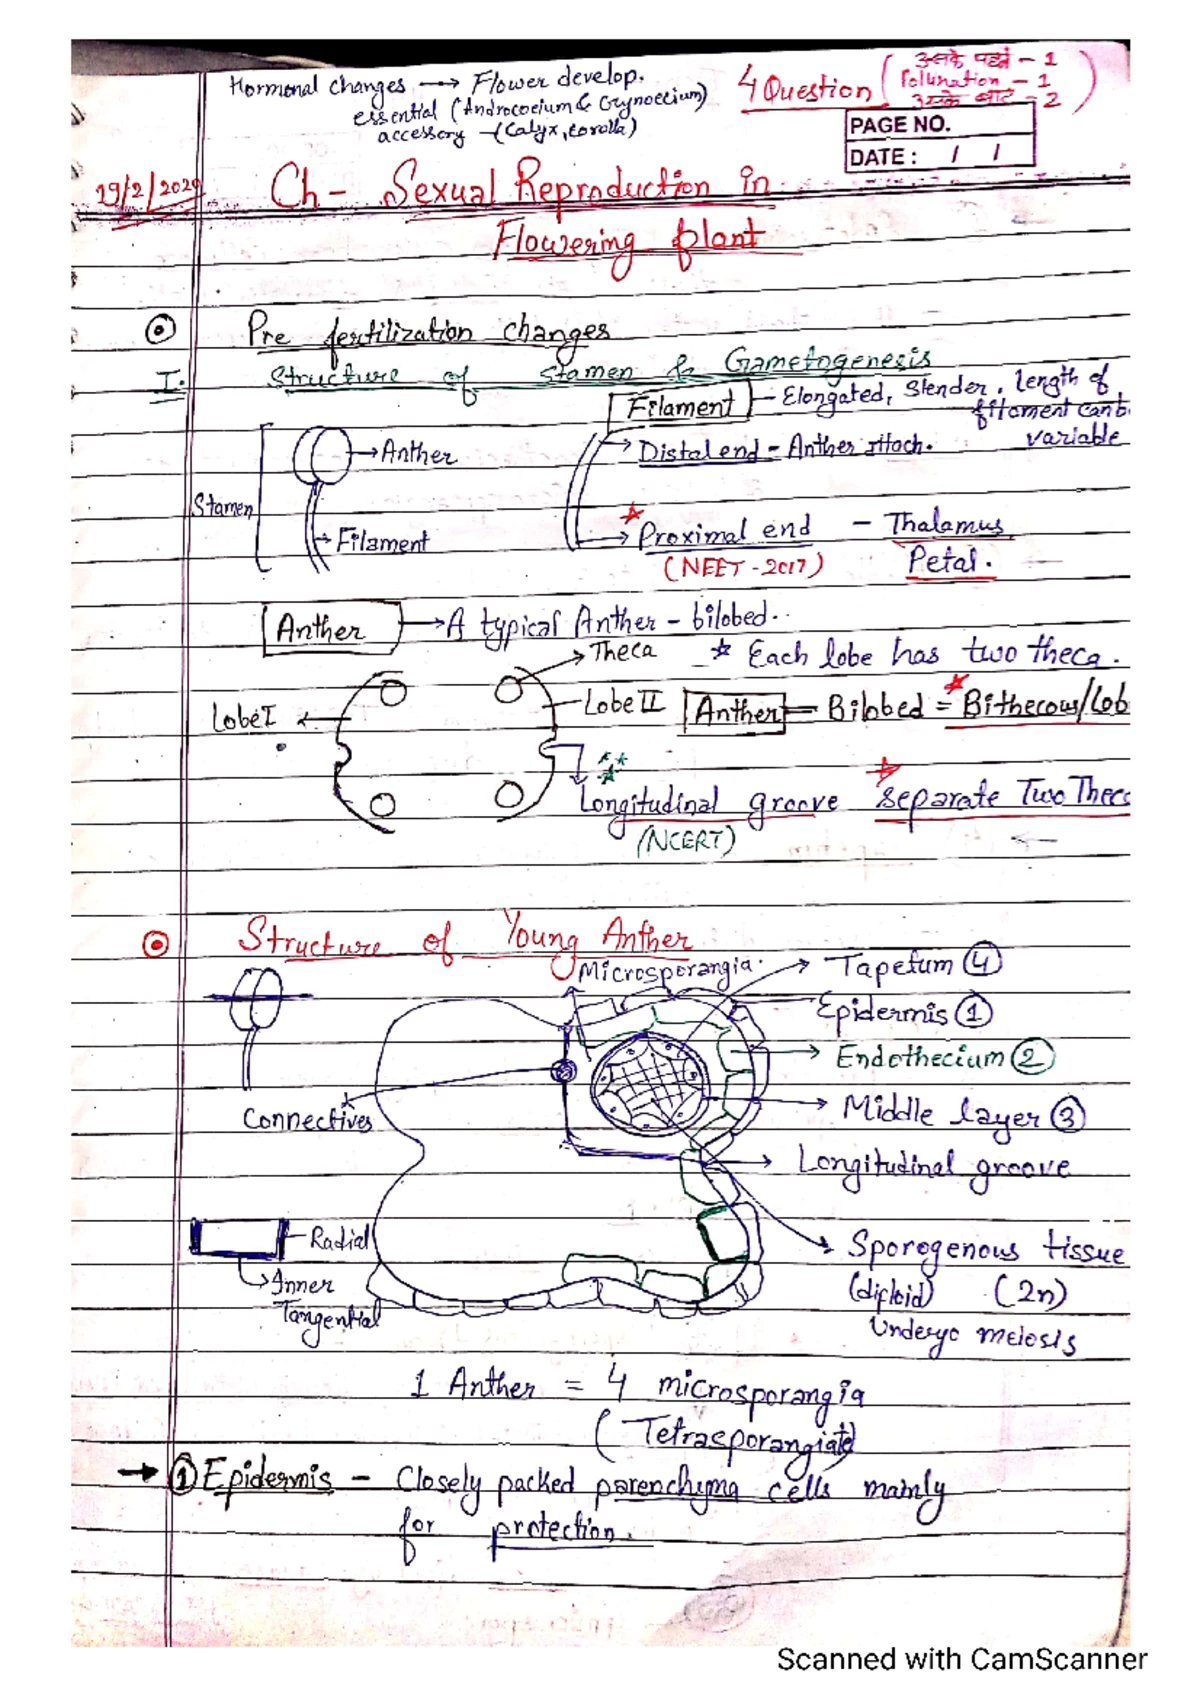 Hormonal changes → Flower develop.
essential (Androcoeium & Gynoecium)
accessory -(Calyx, corolla)
4 Question ( उसके पहले - 1
Pollination - 1
उसके बाद - 2 )
PAGE NO.
DATE : / /
19/2/2020
Ch - Sexual Reproduction in
Flowering plant
Pre fertilization changes
I. Structure of stamen & Gametogenesis
Filament - Elongated, Slender. length of
filament can b
variable
Anther
Stamen
Filament
Distal end - Anther attach.
Proximal end - Thalamus
(NEET - 2017) Petal.
Anther → A typical Anther - bilobed.
Theca * Each lobe has two theca.
Lobe I
Lobe II
Anther = Bilobed = Bithecous/Lob
Longitudinal groove separate Two Thec
(NCERT)
Structure of Young Anther
Microsporangia
Tapetum 4
Epidermis 1
Endothecium 2
Middle layer 3
Connectives
Longitudinal groove
Radial
Inner
Tangential
Sporogenous tissue
(diploid) (2n)
Undergo meiosis
1 Anther = 4 microsporangia
(Tetrasporangiate)
→ 1 Epidermis - Closely packed parenchyma cells mainly
for protection.
Scanned with CamScanner